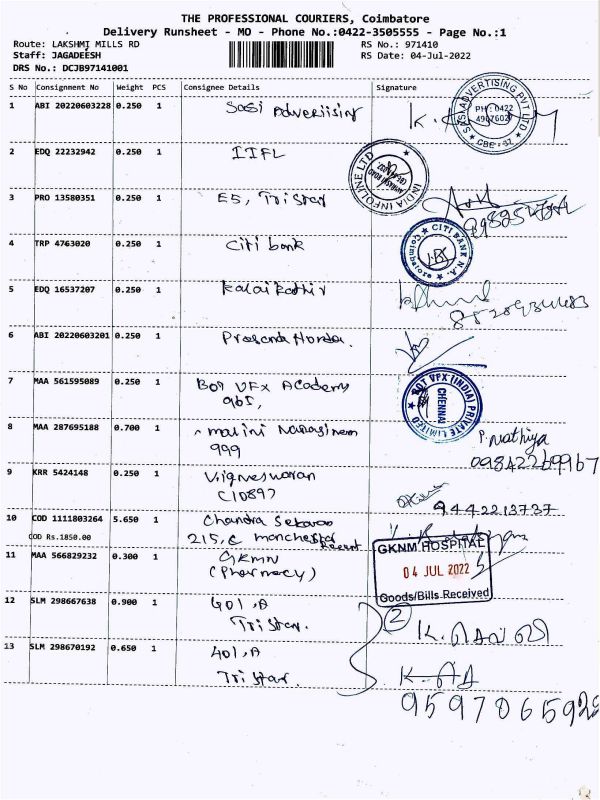 THE PROFESSIONAL COURIERS, Coimbatore
Delivery Runsheet - MO - Phone No.:0422-3505555 - Page No.:1
Route: LAKSHMI MILLS RD RS No.: 971410
Staff: JAGADEESH RS Date: 04-Jul-2022
DRS No.: DCJB97141001
S No Consignment No Weight PCS Consignee Details Signature
1 ABI 20220603228 0.250 1 Sasi Advertising
SASI ADVERTISING PVT LTD
PH : 0422
CBE - 37
2 EDQ 22232942 0.250 1 IIFL
INDIA INFOLINE LTD
3 PRO 13580351 0.250 1 E5, Tristar
4 TRP 4763020 0.250 1 Citi bank
CITI BANK N.A.
Coimbatore
5 EDQ 16537207 0.250 1 Kalaikathir
6 ABI 20220603201 0.250 1 Honda.
7 MAA 561595089 0.250 1 BOT VFX Academy
965,
BOT VFX (INDIA) PRIVATE LIMITED
CHENNAI
8 MAA 287695188 0.700 1 malini
999
P. Nathiya
09842269967
9 KRR 5424148 0.250 1 Vigneswaran
C10897
9442213737
10 COD 1111803264 5.650 1 Chandra Sekaran
COD Rs.1850.00 215, C manchester
11 MAA 566829232 0.300 1 GKMN
(Pharmacy)
GKNM HOSPITAL
04 JUL 2022
Goods/Bills Received
12 SLM 298667638 0.900 1 401, A
Tristar.
2
13 SLM 298670192 0.650 1 401, A
Tristar.
9597065928